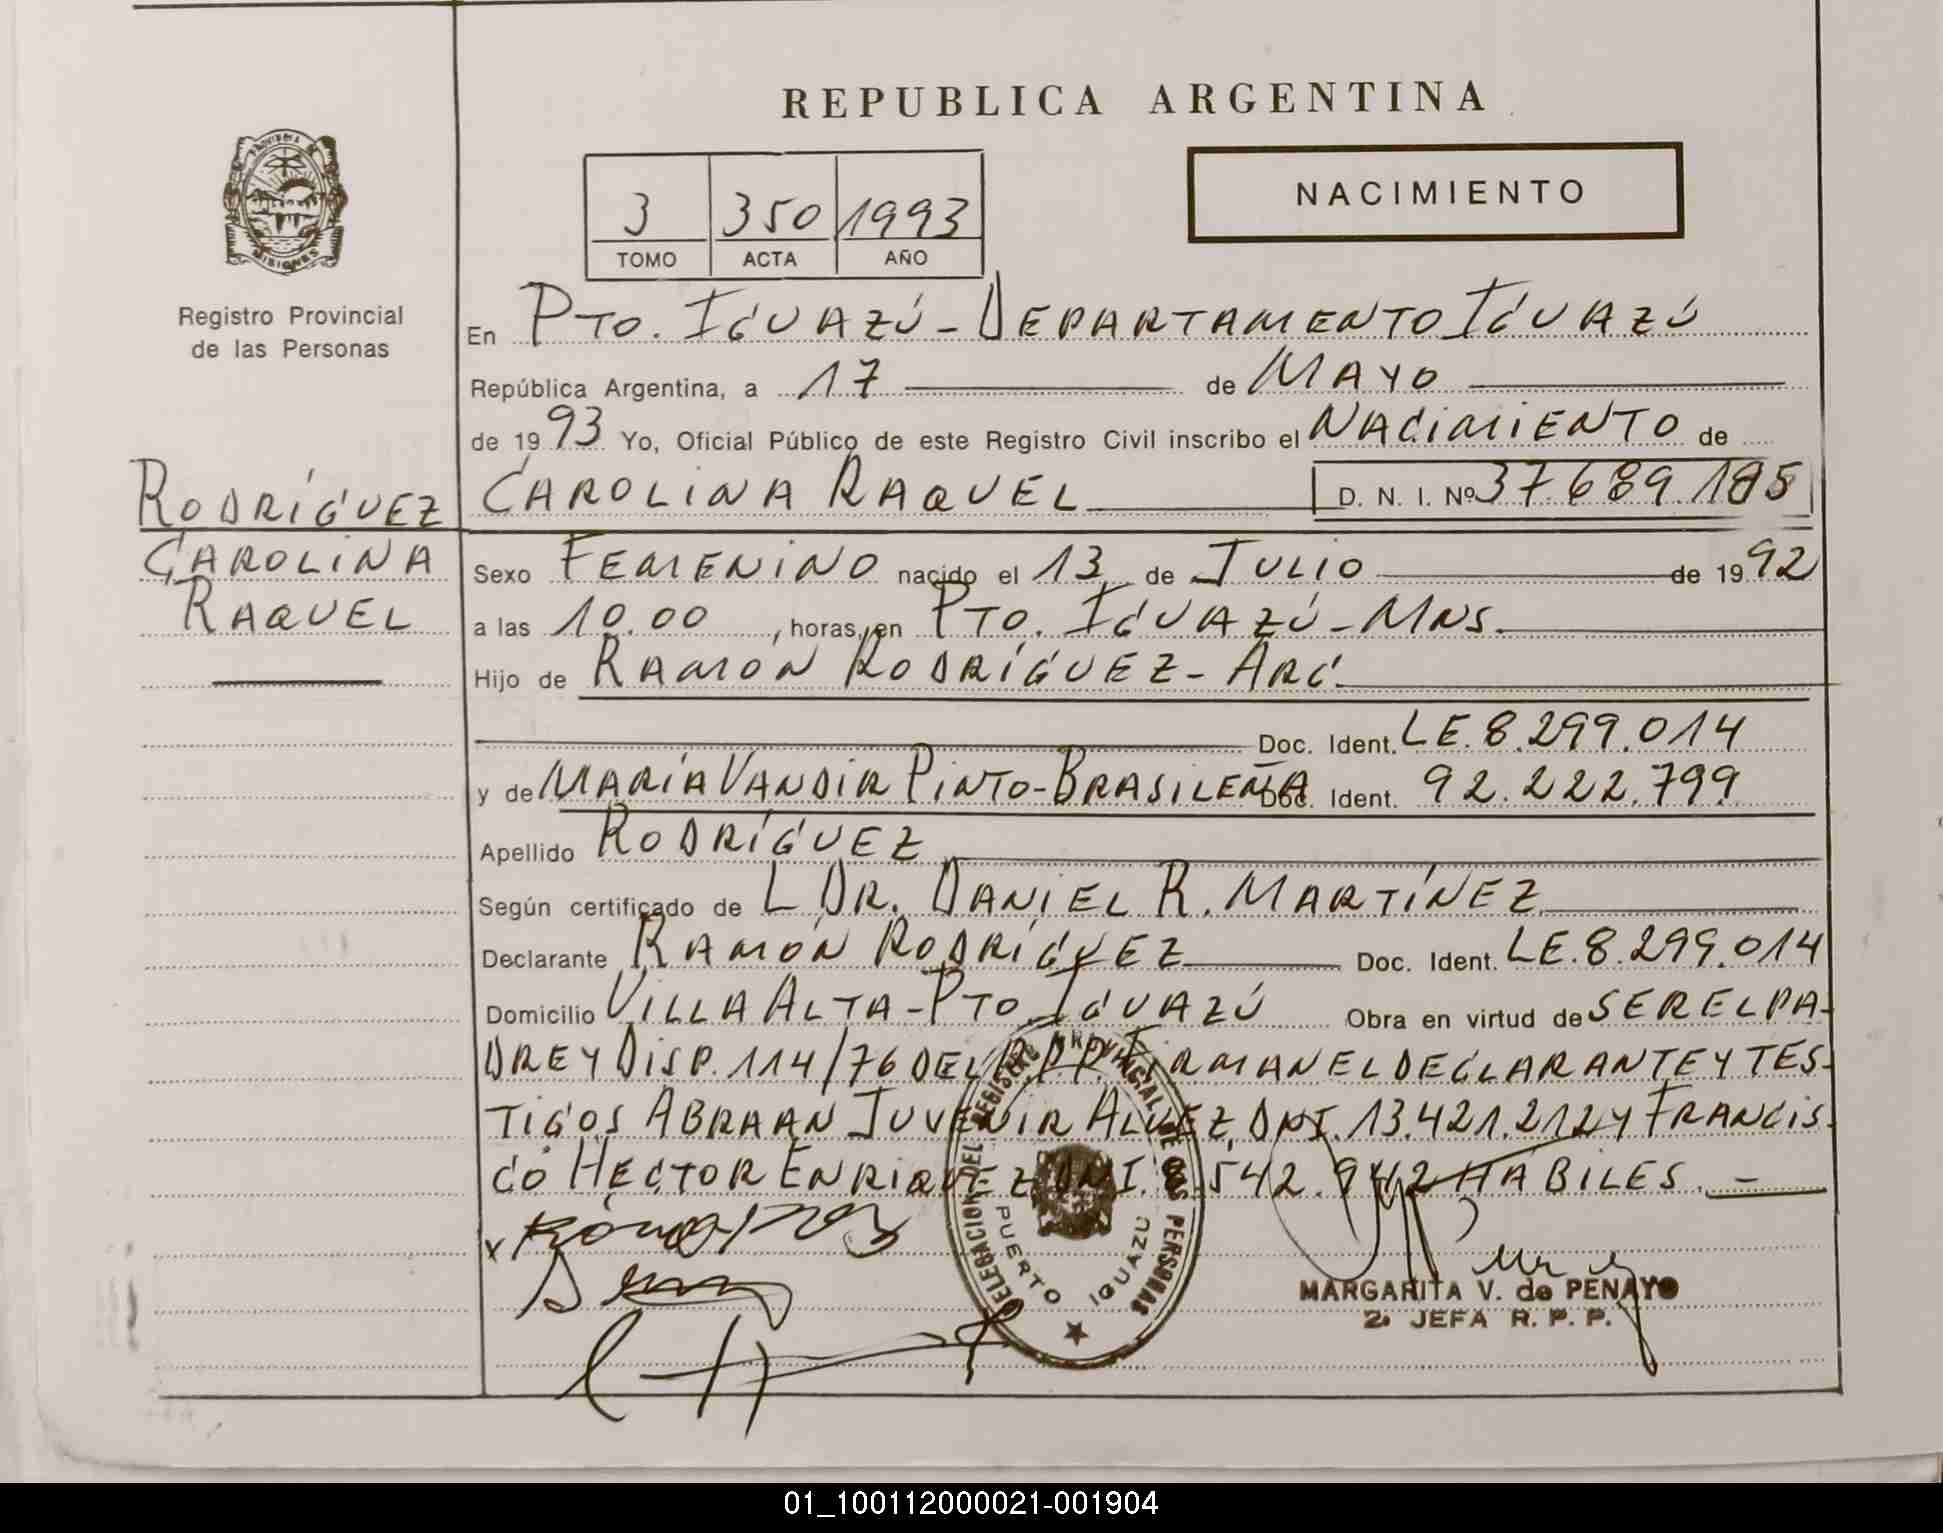 REPUBLICA ARGENTINA
NACIMIENTO
3 350 1993
TOMO ACTA AÑO
PROVINCIA DE
MISIONES
Registro Provincial
de las Personas
En PTO. IGUAZÚ - DEPARTAMENTO IGUAZÚ
República Argentina, a 17 de MAYO
de 1993 Yo, Oficial Público de este Registro Civil inscribo el NACIMIENTO de
RODRÍGUEZ
CAROLINA
RAQUEL
CAROLINA RAQUEL D. N. I. Nº 37.689.185
Sexo FEMENINO nacido el 13 de JULIO de 1992
a las 10.00, horas, en PTO. IGUAZÚ - MNS.
Hijo de RAMÓN RODRÍGUEZ - ARG.
Doc. Ident. LE. 8.299.014
y de MARÍA VANDIR PINTO - BRASILEÑA Doc. Ident. 92.222.799
Apellido RODRÍGUEZ
Según certificado de L DR. DANIEL R. MARTÍNEZ
Declarante RAMÓN RODRÍGUEZ Doc. Ident. LE. 8.299.014
Domicilio VILLA ALTA - PTO. IGUAZÚ Obra en virtud de SER EL PA-
DRE Y DISP. 114/76 DEL R.P.P. FIRMAN EL DECLARANTE Y TES-
TIGOS ABRAAN JUVENIR ALVEZ, DNI. 13.421.212 Y FRANCIS-
CO HECTOR ENRIQUEZ DNI. 8.542.942 HABILES. -
DELEGACION DEL REGISTRO PROVINCIAL DE LAS PERSONAS
PUERTO IGUAZU
MARGARITA V. de PENAYO
2ª JEFA R. P. P.
01_100112000021-001904